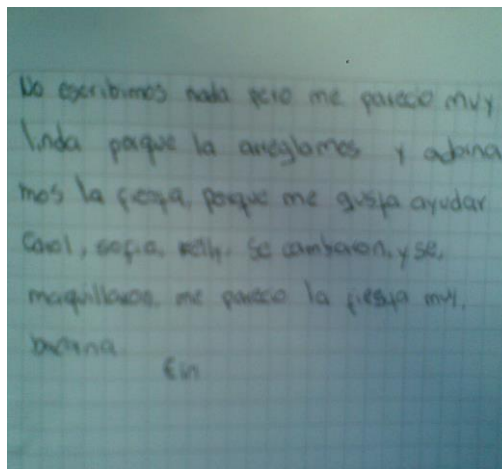 No escribimos nada pero me parecio muy
linda porque la arreglamos y adorna
mos la fiesta, porque me gusta ayudar
Carol, sofia, kelly. Se cambiaron, y se,
maquillaron, me parecio la fiesta muy,
buena
Fin